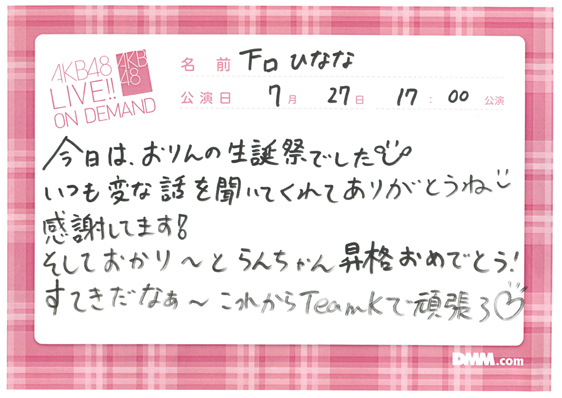 AKB48
LIVE!!
ON DEMAND
AKB
48
名前 下口ひなな
公演日 7月 27日 17:00 公演
今日は、おりんの生誕祭でした
いつも変な話を聞いてくれてありがとうね
感謝してます!
そしておかり〜と らんちゃん昇格おめでとう!
すてきだなぁ〜これからTeamKで頑張る
DMM.com